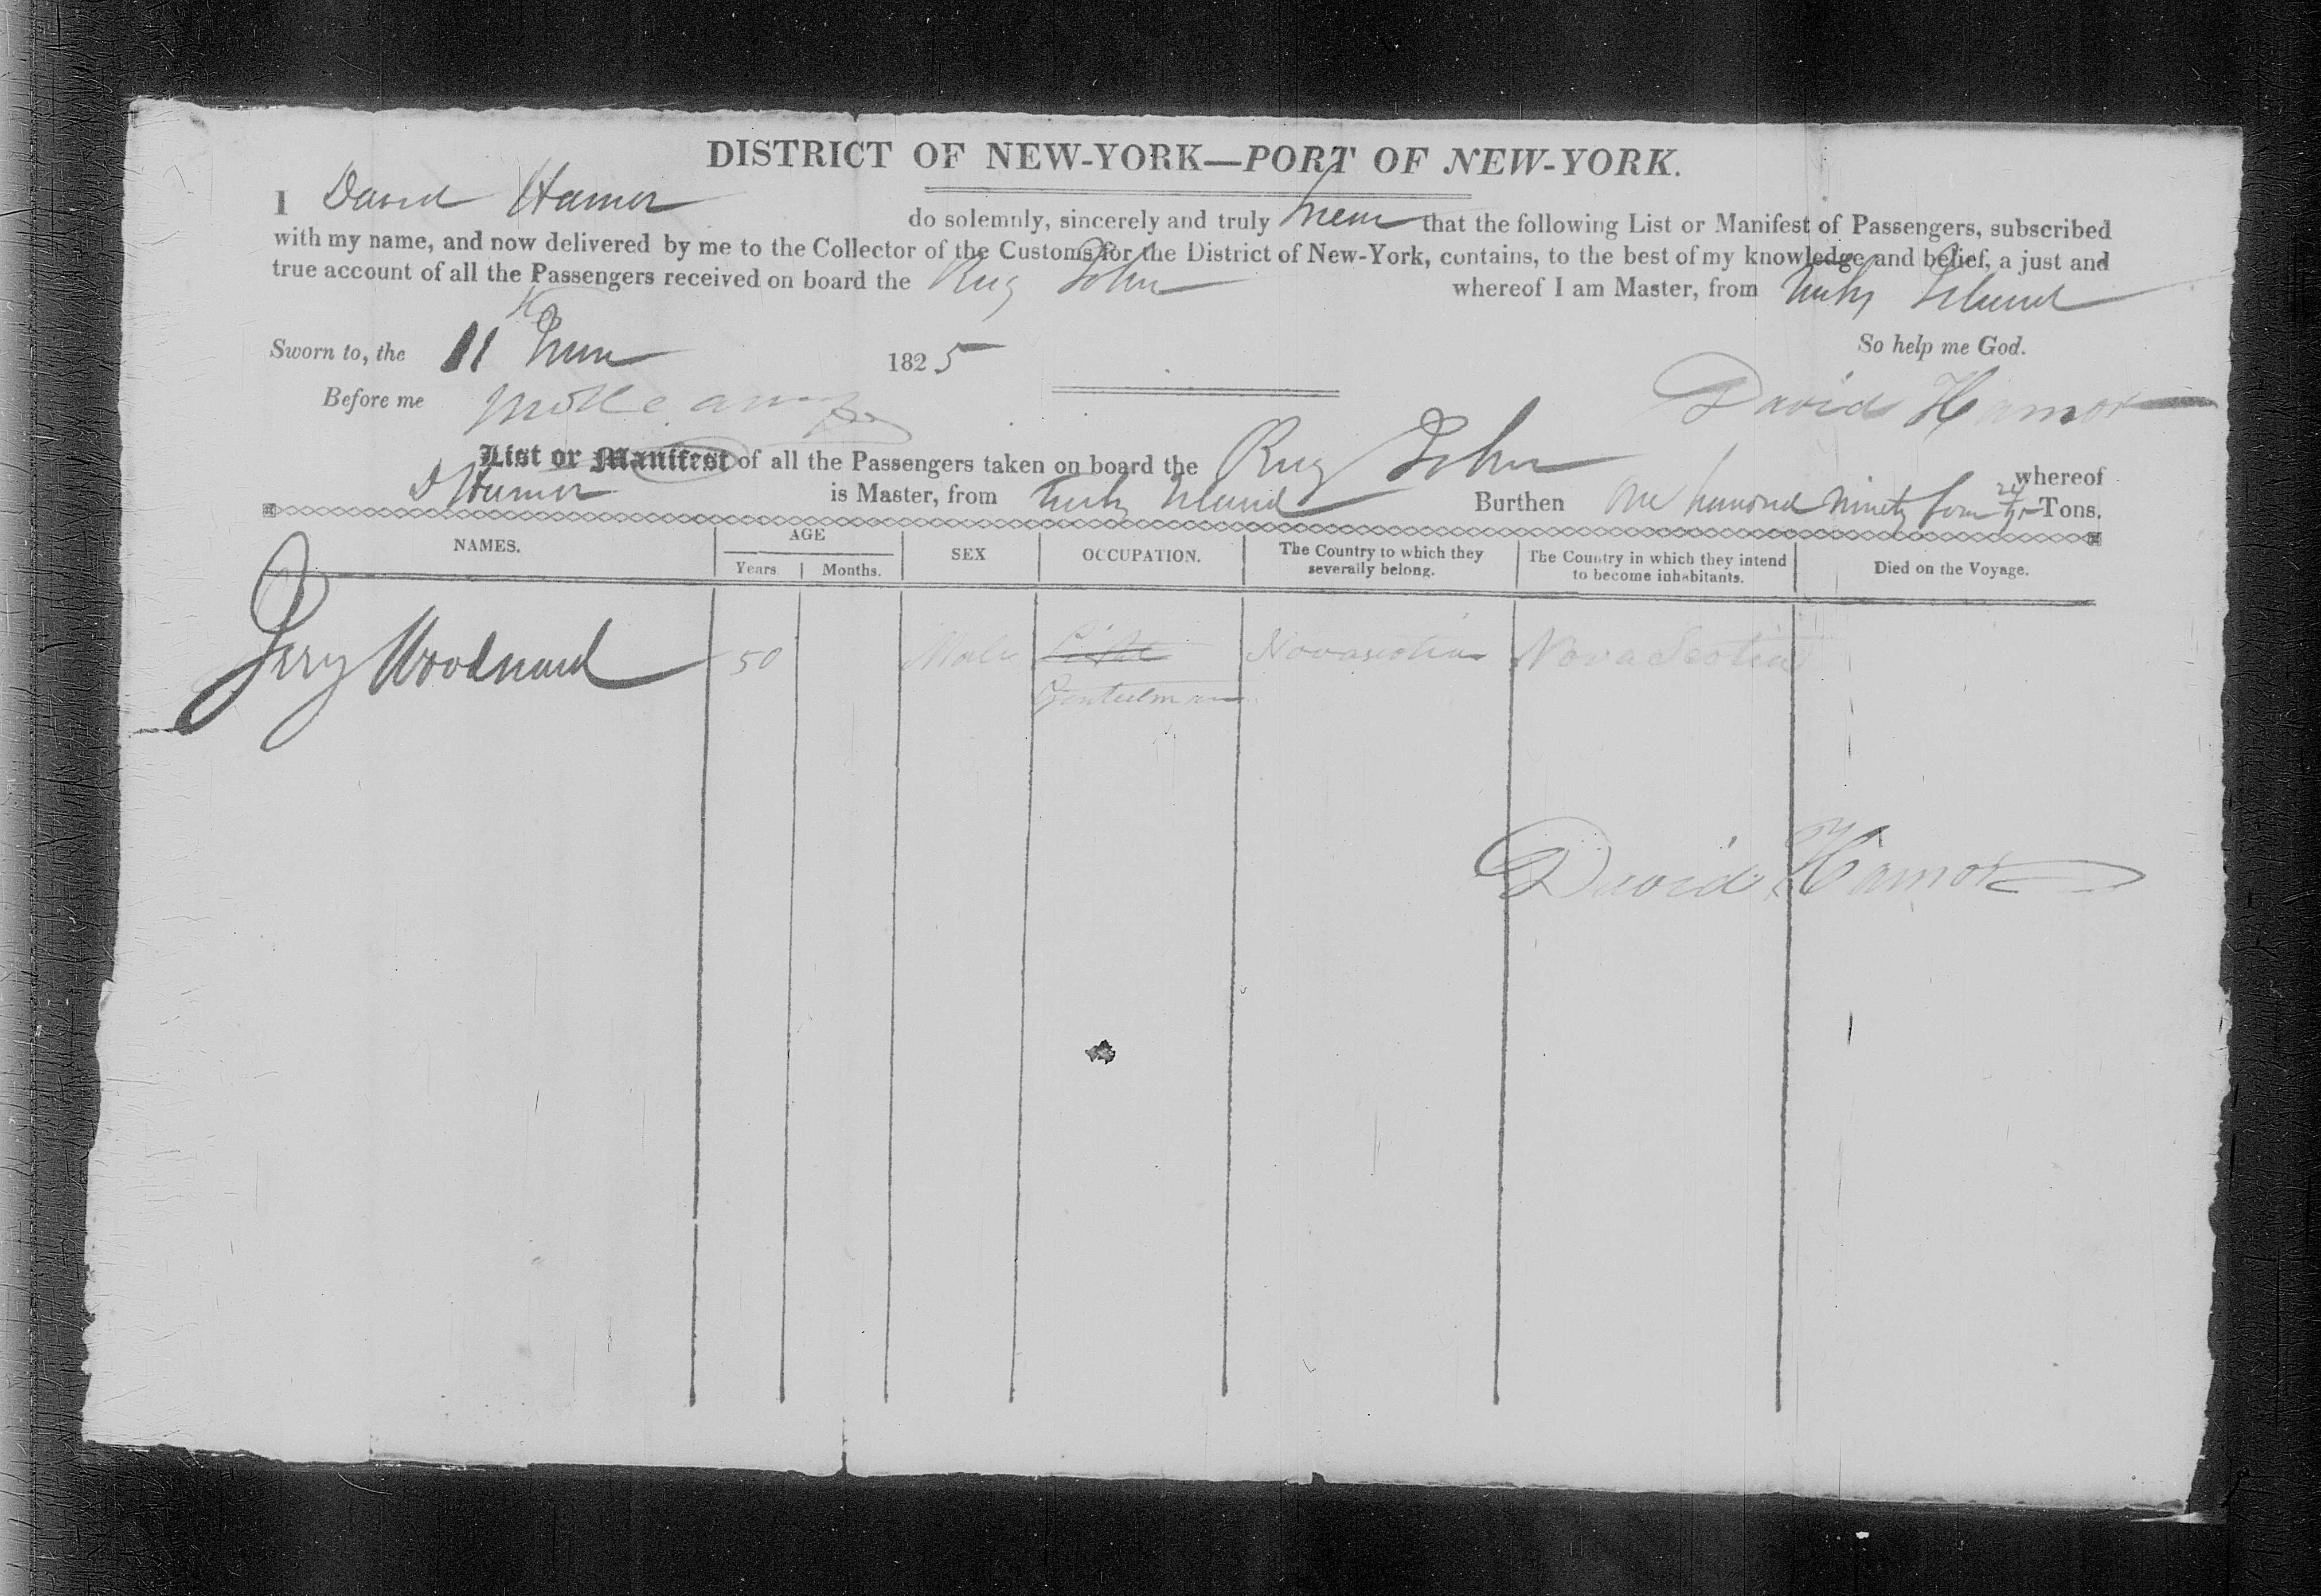 DISTRICT OF NEW-YORK—PORT OF NEW-YORK.
I David Hamor do solemnly, sincerely and truly swear that the following List or Manifest of Passengers, subscribed
with my name, and now delivered by me to the Collector of the Customs for the District of New-York, contains, to the best of my knowledge and belief, a just and
true account of all the Passengers received on board the Brig John whereof I am Master, from Turks Island
So help me God.
Sworn to, the 11 June 1825
Before me
David Hamor
List or Manifest of all the Passengers taken on board the Brig John whereof
D Hamor is Master, from Turks Island Burthen One hundred ninety four Tons.
NAMES. AGE SEX OCCUPATION. The Country to which they severally belong. The Country in which they intend to become inhabitants. Died on the Voyage.
Years Months.
50 Male Novascotia Nova Scotia
Gentleman
David Hamor